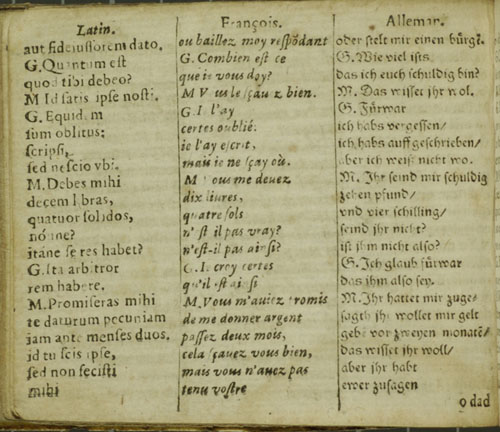 Latin.
aut fideiussorem dato.
G. Quantum est
quod tibi debeo?
M Id satis ipse nosti.
G. Equidem
sum oblitus:
scripsi,
sed nescio vbi.
M. Debes mihi
decem libras,
quatuor solidos,
nónne?
itane se res habet?
G. Ita arbitror
rem habere.
M. Promiseras mihi
te daturum pecuniam
iam ante menses duos,
id tu scis ipse,
sed non fecisti
mihi
François.
ou baillez moy respõdant
G. Combien est ce
que ie vous doy?
M Vous le sçauez bien.
G. Ie l'ay
certes oublié:
ie l'ay escrit,
mais ie ne sçay où.
M Vous me deuez
dix liures,
quatre sols
n'est il pas vray?
n'est-il pas ainsi?
G. Ie croy certes
qu'il est ainsi
M. Vous m'auiez promis
de me donner argent
passez deux mois,
cela sçauez vous bien,
mais vous n'auez pas
tenu vostre
Alleman.
oder stelt mir einen bürg?.
G. Wie viel ists
das ich euch schuldig bin?
M. Das wisset jhr wol.
G. Fürwar
ich habs vergessen/
ich habs auff geschrieben/
aber ich weiß nicht wo.
M. Ihr seind mir schuldig
zehen pfund/
vnd vier schilling/
seind jhr nicht?
ist jhm nicht also?
G. Ich glaub fürwar
das jhm also sey.
M. Ihr hattet mir zuge-
sagth jhr wollet mir gelt
gebẽ vor zweyen monatẽ/
das wisset jhr woll/
aber jhr habt
ewer zusagen
o dad